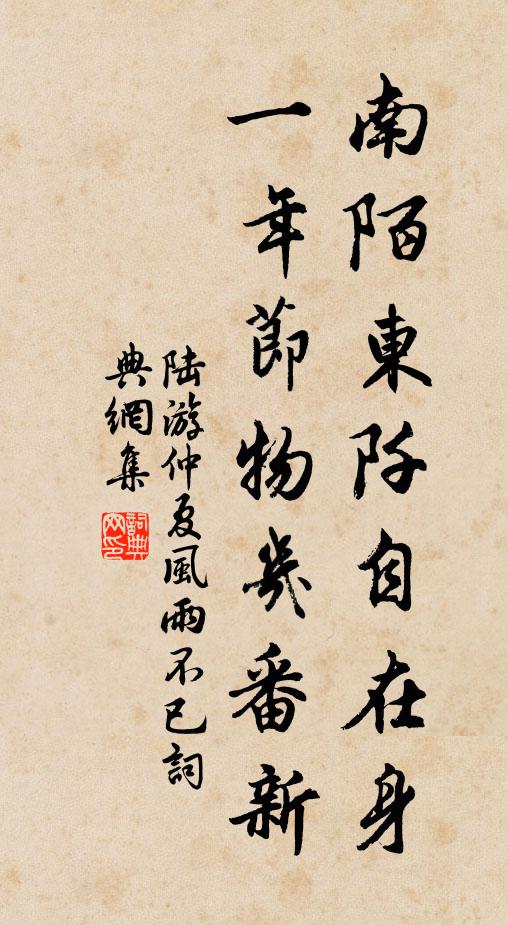 南陌東阡自在身
一年節物幾番新
陆游仲夏風雨不已詞
典網集
詞典網印